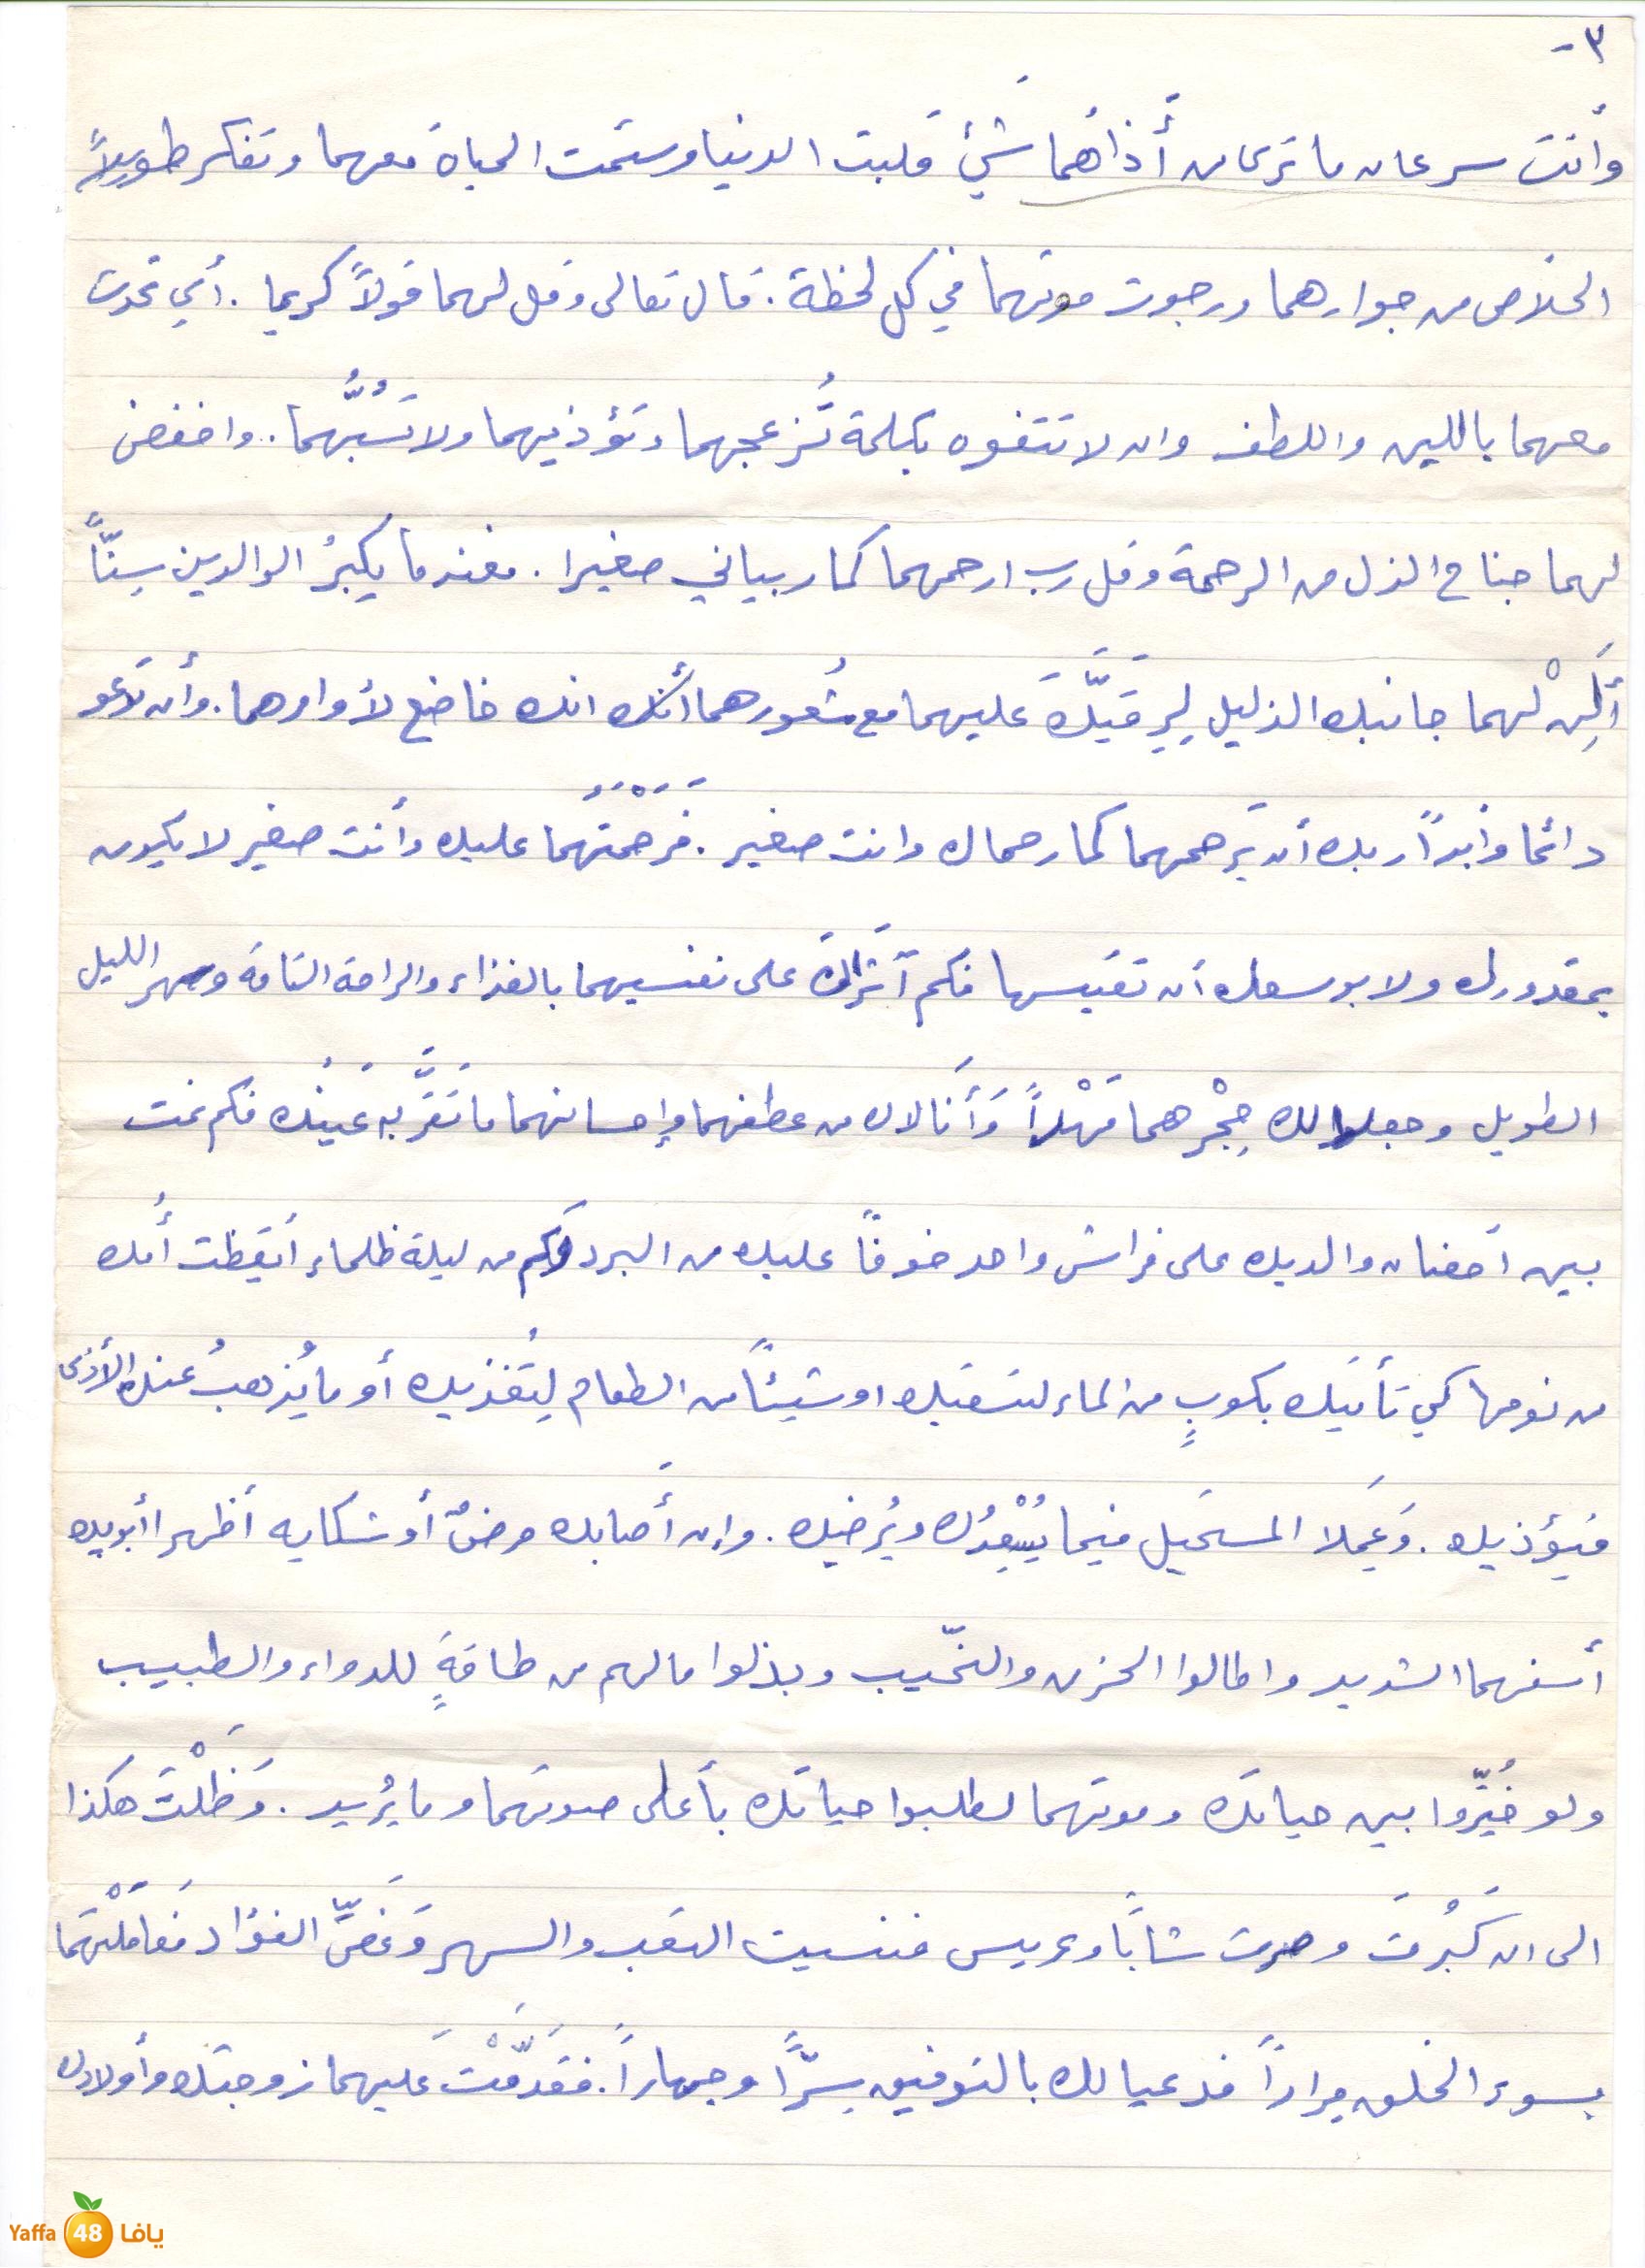 ٣-
وأنت سرعان ما ترى من أذاهُما شيئ قلبت الدنيا وسئمت الحياة معهما وتفكر طويلاً
الخلاص من جوارهما ورجوت موتهما في كل لحظة. قال تعالى وقل لهما قولاً كريما. أي تحدث
معهما باللين واللطف وان لا تتفوه بكلمة تُزعجهما وتؤذيهما ولا تسُبُّهما.. واخفض
لهما جناح الذل من الرحمة وقل رب ارحمهما كما ربياني صغيرا. فعندما يكبرُ الوالدين سِنّاً
أَلِنْ لهما جانبك الذليل عليهما مع شُعورهما انك خاضع لأوامرهما. وأن تدعو
دائما وأبداً ربك أن يرحمهما كما رحماك وانت صغير. فرَحْمَتُهُما عليك وأنت صغير لا يكون
بمقدورك ولا بوسعك أن تقيسها فكم آثراك على نفسيهما بالغذاء والراحة التامة وسهر الليل
الطويل وجعلا لك حِجْرهما مَهْداً وَأنالاك من عطفهما وإحسانهما ما تَقَرَّ به عَينُك فكم نمت
بين أحضان والديك على فراش واحد خوفاً عليك من البرد وكم من ليلة ظلماء أيقظت أُمك
من نومها كي تأتيك بكوبٍ من الماء لتسقيك او شيئاً من الطعام لِتُغذيك أو ما يُذهبُ عنك الأذى
فيؤذيك. وَعَمِلا المستحيل فيما يُسْعِدُك ويُرضيك. وإن أصابك مرضٌ أو شكايه أظهرا أبويك
أسفهما الشديد واطالوا الحزن والنحّيب وبذلوا ما لهم من طاقةٍ للدواء والطبيب
ولو خُيّروا بين حياتك وموتهما لطلبوا حياتك بأعلى صوتهما وما يُريد. وَظَلْتَ هكذا
الى ان كَبُرْتَ وصرت شاباً وعريس فنسيت التعب والسهر الفؤاد فعامَلْتهما
بسوء الخلق مراراً فدعيا لك بالتوفيق سِرّاً وجهاراً. فقَدّمْتَ عَليهما زوجتك وأولادك
Yaffa 48 يافا